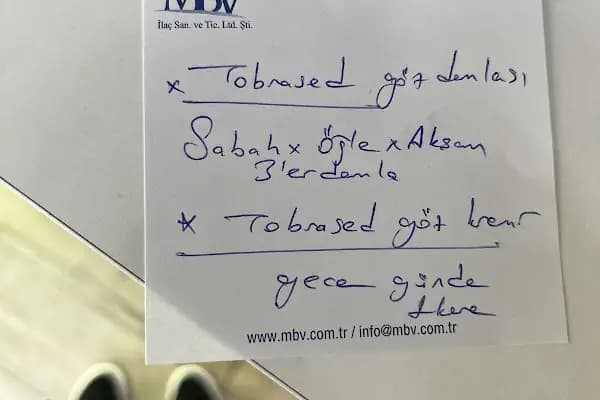 MBV
İlaç San. ve Tic. Ltd. Şti.
x Tobrased göz damlası
Sabah x Öğle x Akşam
3'er damla
* Tobrased göz kremi
gece günde
1 kere
www.mbv.com.tr / info@mbv.com.tr